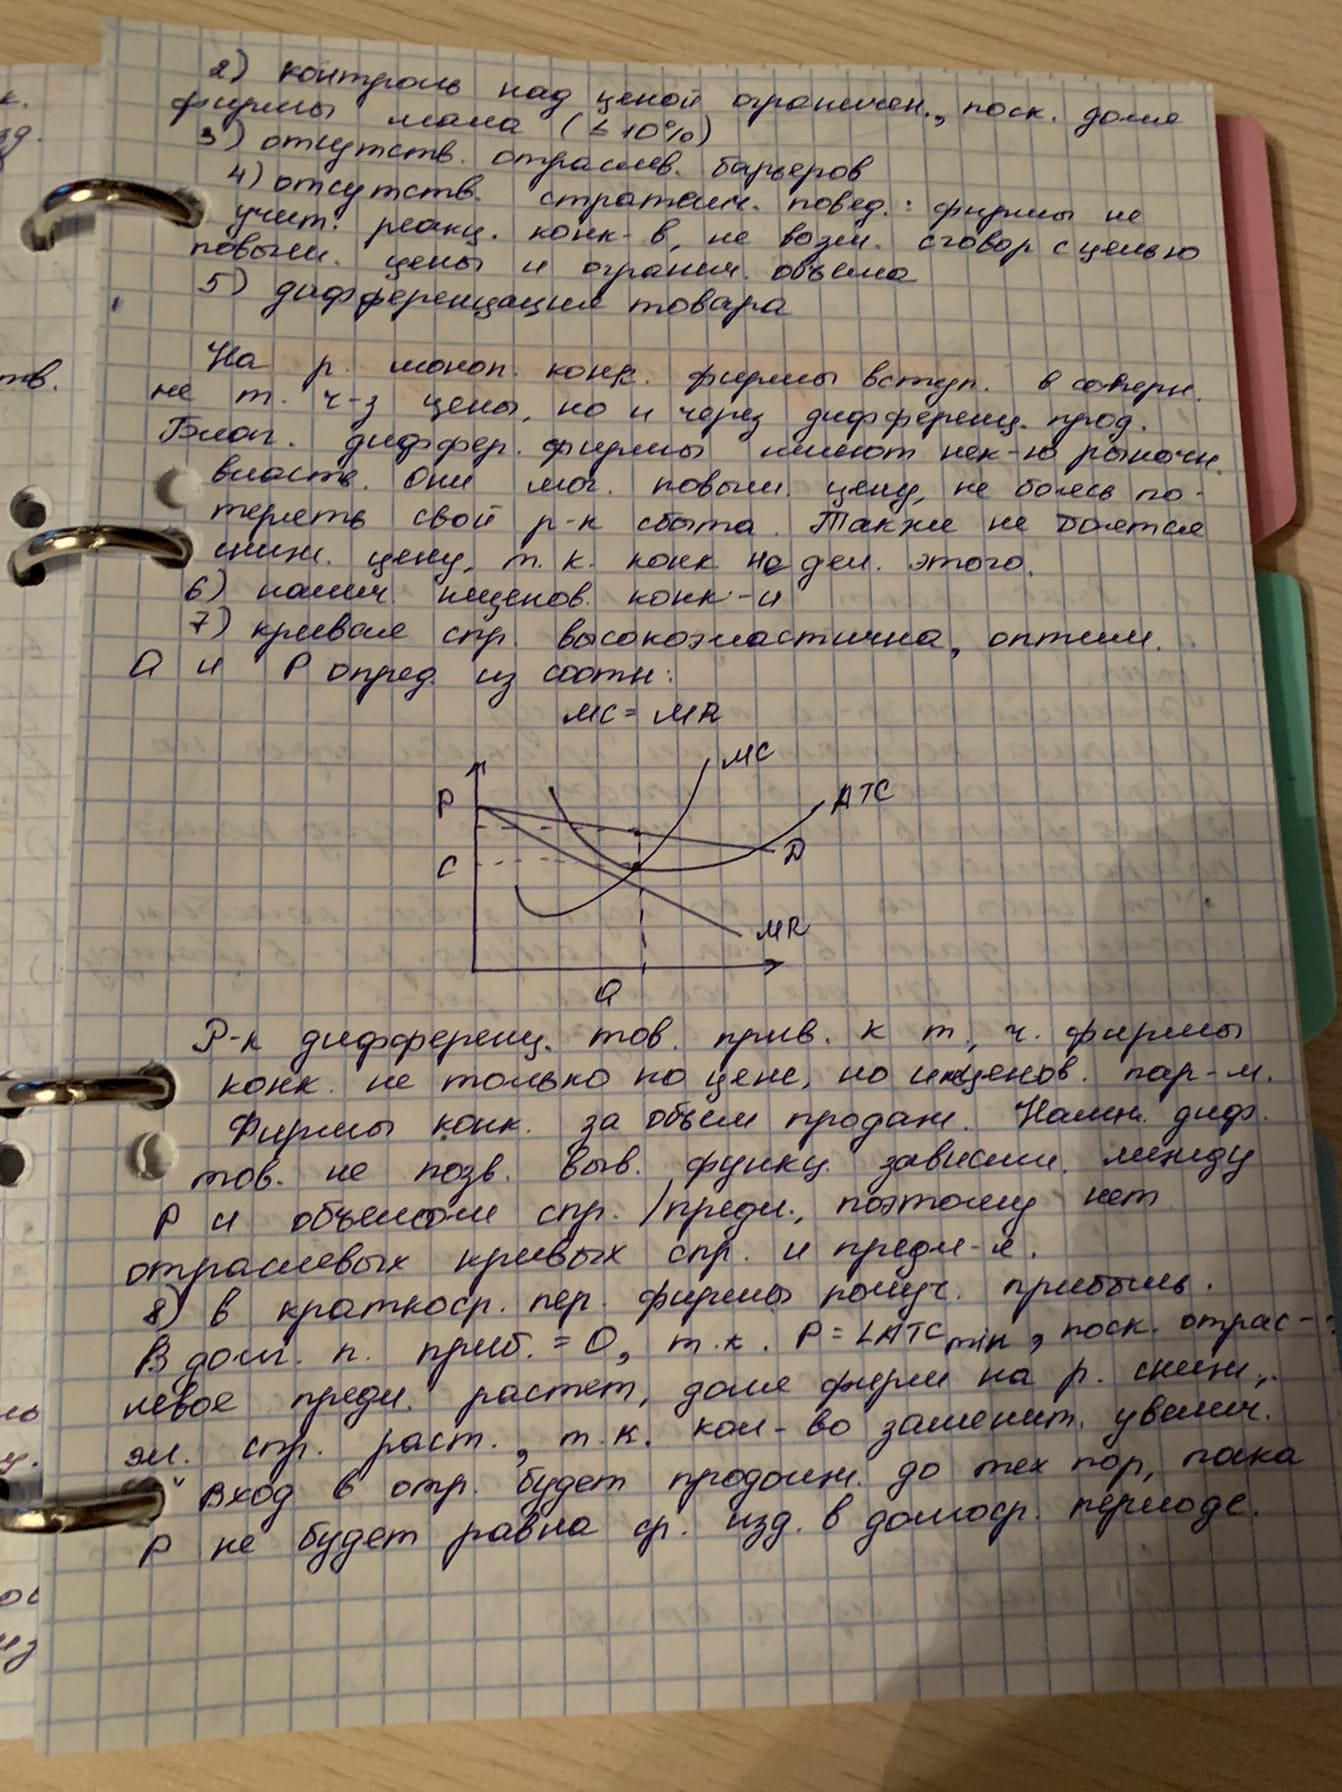 2) контроль над ценой ограничен., поск. доля
фирмы мала (≤ 10%)
3) отсутств. отраслев. барьеров
4) отсутств. стратегич. повед.: фирмы не
учит. реакц. конк-в, не возм. сговор с целью
повыш. цены и огранич. объема
5) дифференциация товара
На р. моноп. конк. фирмы вступ. в соперн.
не т. ч-з цены, но и через дифференц. прод.
Благ. диффер. фирмы имеют нек-ю рыночн.
власть. Они мог. повыш. цену, не боясь по-
терять свой р-к сбыта. Также не боятся
сниж. цену, т.к. конк. не дел. этого.
6) налич. неценов. конк-и
7) кривая спр. высокоэластична, оптим.
Q и P опред. из соотн:
MC = MR
MC
P
ATC
C
D
MR
Q
Р-к дифференц. тов. прив. к т., ч. фирмы
конк. не только по цене, но и неценов. пар-м.
Фирмы конк. за объем продаж. Налич. диф.
тов. не позв. выв. функц. зависим. между
P и объемом спр./предл., поэтому нет
отраслевых кривых спр. и предл-я.
8) в краткоср. пер. фирмы получ. прибыль.
В долг. п. приб. = 0, т.к. P = LATC min, поск. отрас-
левое предл. растет, доля фирм на р. сниж.,
эл. спр. раст., т.к. кол-во заменит. увелич.
Вход в отр. будет продолж. до тех пор, пока
P не будет равна ср. изд. в долгоср. периоде.